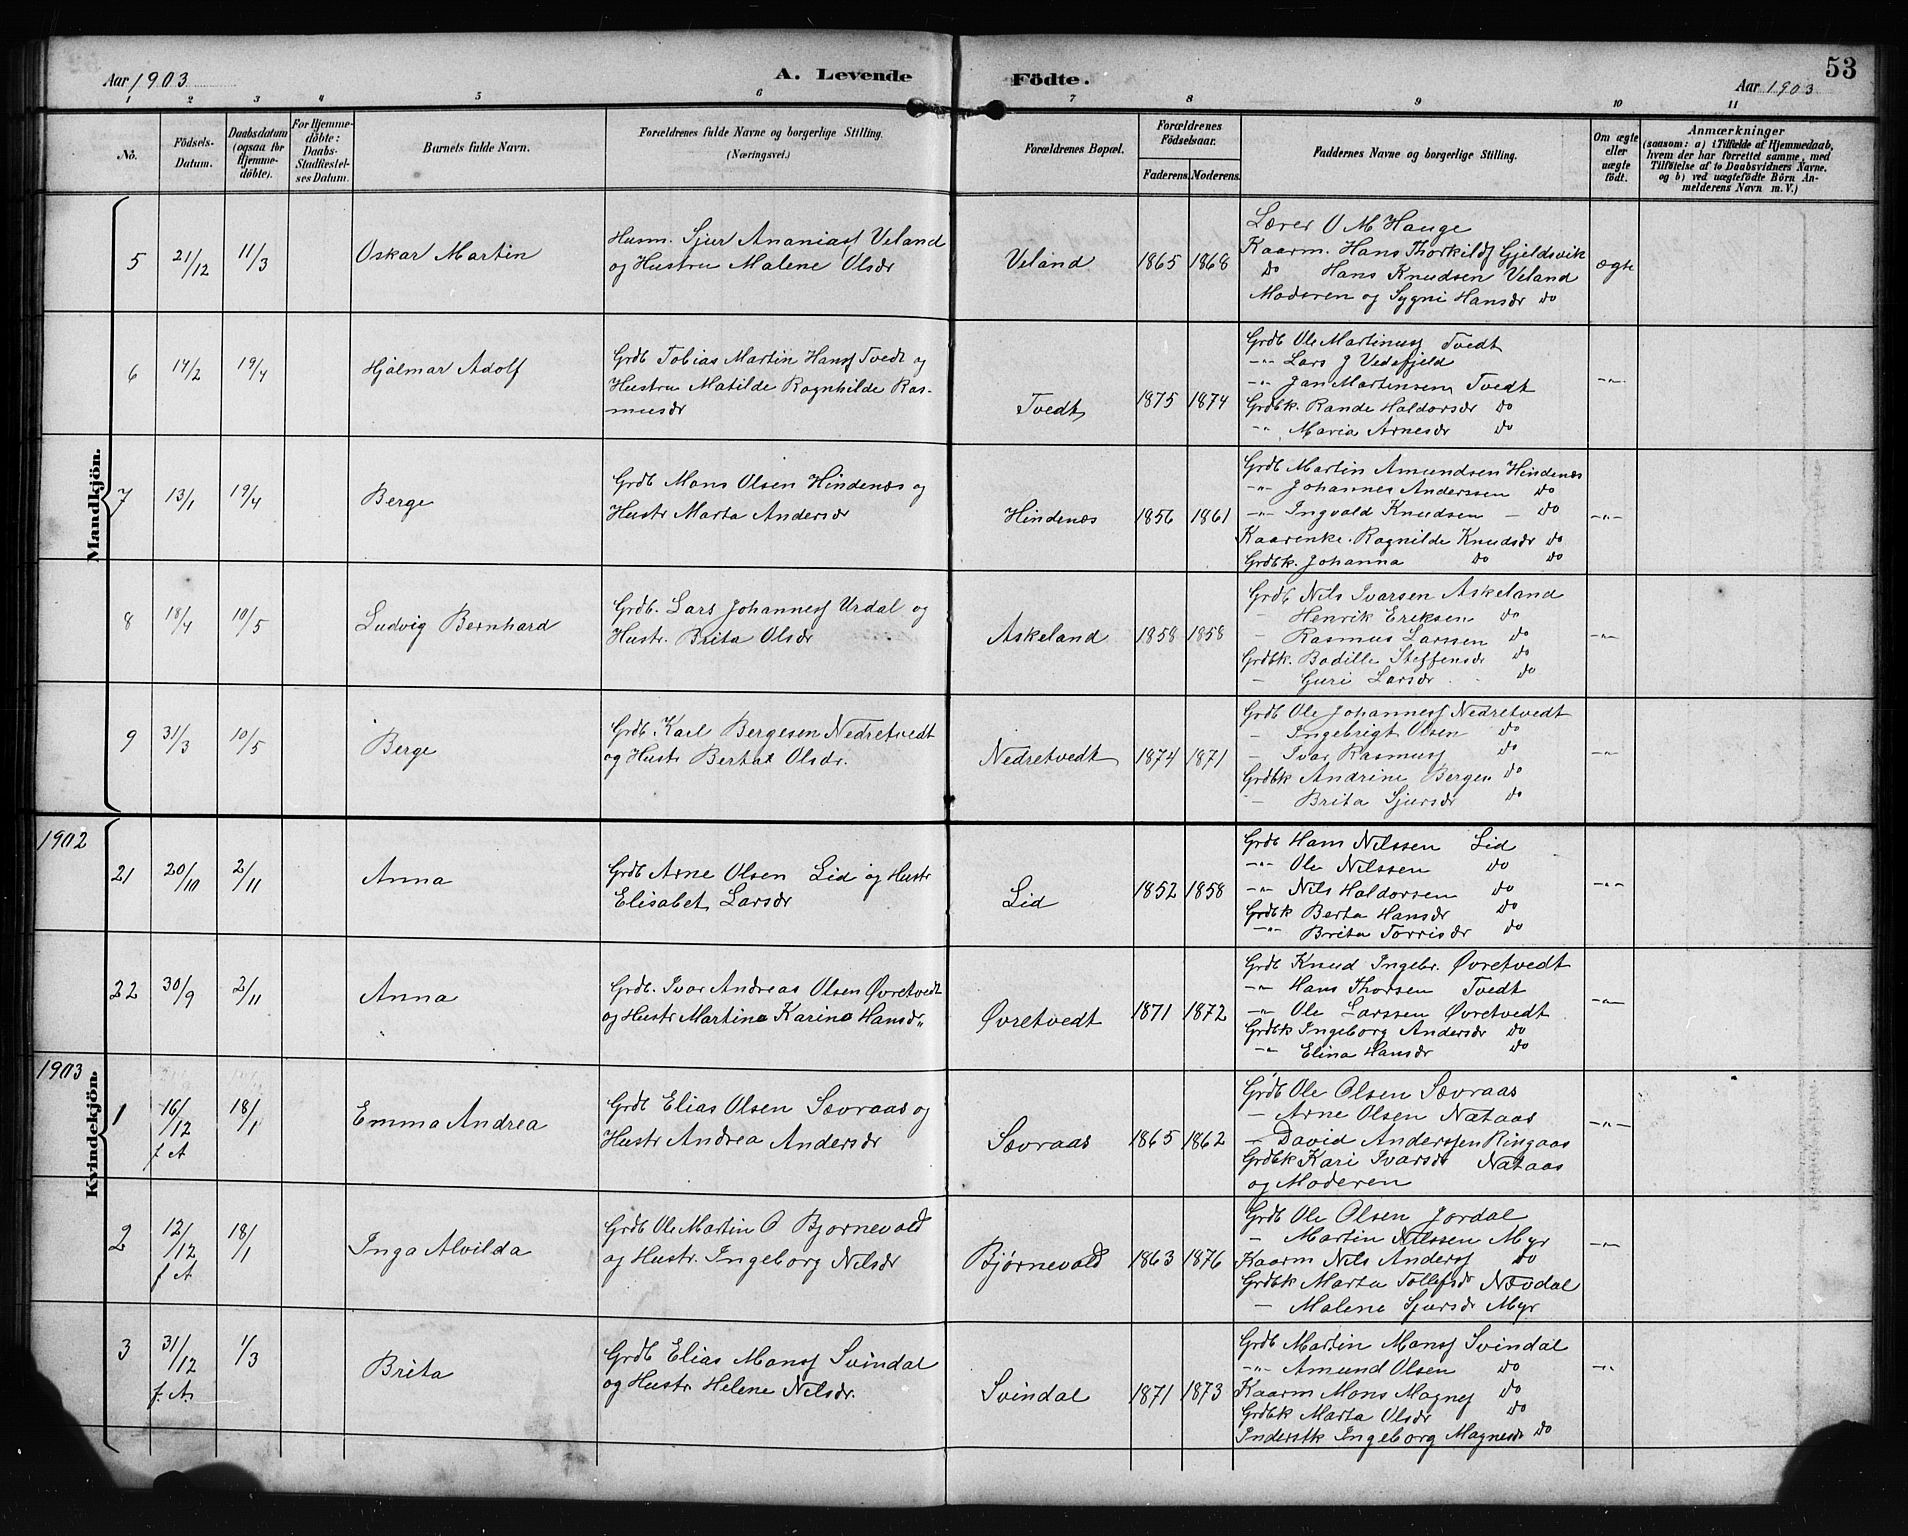 Aar 1903
A. Levende Födte.
53
Aar 1903
1 2 3 4 5 6 7 8 9 10 11
No.
Födsels-Datum.
Daabsdatum (ogsaa for Hjemme-döbte).
For Hjemme-döbte: Daabs-Stadfæstel-ses Datum.
Barnets fulde Navn.
Forældrenes fulde Navne og borgerlige Stilling. (Næringsvei.)
Forældrenes Bopæl.
Forældrenes Födselsaar.
Faderens. Moderens.
Faddernes Navne og borgerlige Stilling.
Om ægte eller uægte födt.
Anmærkninger
(saasom: a) i Tilfælde af Hjemmedaab,
hvem der har forrettet samme, med
Tilföielse af to Daabsvidners Navne.
og b) ved uægtefödte Börn An-
melderens Navn m. V.)
Mandkjön.
5 21/12 11/3 Oskar Martin
Husm. Sjur Ananiasf Veland
og Hustru Malene Olsdr
Veland 1865 1868
Lærer O M Hauge
Kaarm. Hans Thorkildf Gjeldsvik
do Hans Knudsen Veland
Moderen og Sygni Hansdr do
ægte
6 14/2 19/4 Hjalmar Adolf
Grdb Tobias Martin Hansf Tvedt og
Hustru Matilde Ragnhilde Ras-
musdr
Tvedt 1875 1874
Grdb Ole Martinusf Tvedt
-"- Lars J Vedefjeld
-"- Jan Martinsen Tvedt
Grdbk. Rande Haldorsdr do
-"- Maria Arnesdr do
-"-
7 13/1 19/4 Berge
Grdb Mons Olsen Hindenæs og
Hustr Marta Andersdr
Hindenæs 1856 1861
Grdb Martin Amundsen Hindenæs
-"- Johannes Anderssen do
-"- Ingvald Knudsen - do
Kaarenke. Ragnilde Knudsdr do
Grdbk. Johanna do do
-"-
8 18/4 10/5 Ludvig Bernhard
Grdb. Lars Johannesf Urdal og
Hustr. Brita Olsdr
Askeland 1858 1858
Grdb Nils Ivarsen Askeland
- Henrik Eriksen do
- Rasmus Larssen do
Grdbk. Bodille Steffensdr do
- Guri Larsdr do
-"-
9 31/3 10/5 Berge
Grdb. Karl Bergesen Nedretvedt
og Hustr Berta Olsdr.
Nedretvedt 1874 1871
Grdb Ole Johannesf Nedretvedt
- Ingebrigt Olsen do
- Ivar Rasmusf do
Grdbk Andrine Bergen do
- Brita Sjursdr do
-"-
Kvindekjön.
1902
21 20/10 2/11 Anna
Grdb Arne Olsen Lid og Hustr
Elisabet Larsdr
Lid 1852 1858
Grdb Hans Nilssen Lid
-"- Ole Nilssen do
-"- Nils Haldorsen do
Grdbk Berta Hansdr do
-"- Brita Torrisdr do
-"-
22 30/9 2/11 Anna
Grdb. Ivar Andreas Olsen Øvretvedt
og Hustr Martina Karina Hansdr"
Øvretvedt 1871 1872
Grdb Knud Ingebr. Øvretvedt
-"- Hans Thorsen Tvedt
-"- Ole Larssen Øvretvedt
Grdbk Ingeborg Andersdr do
-"- Elina Hansdr do
-"-
1903
1 16/12 f A 18/1 Emma Andrea
Grdb Elias Olsen Sævraas og
Hustr Andrea Andersdr
Sævraas 1865 1862
Grdb Ole Olsen Sævraas
- Arne Olsen Nataas
- David Anderssen Ringaas
Grdbk Kari Ivarsdr Nataas
og Moderen
-"-
2 12/12 f A 18/1 Inga Alvilda
Grdb Ole Martin O Bjørnevold
og Hustr. Ingeborg Nilsdr
Bjørnevold 1863 1876
Grdb Ole Olsen Jordal
- Martin Nilssen Myr
Kaarm Nils Andersf do
Grdbk Marta Tollefsdr Nævdal
- Malene Sjursdr Myr
-"-
3 31/12 f. A. 1/3 Brita
Grdb Elias Monsf Svindal
og Hustr Helene Nilsdr.
Svindal 1871 1873
Grdb Martin Monsf Svindal
-"- Amund Olsen do
Kaarm Mons Magnef do
Grdbk Marta Olsdr do
Inderstk Ingeborg Magnesdr do
-"-